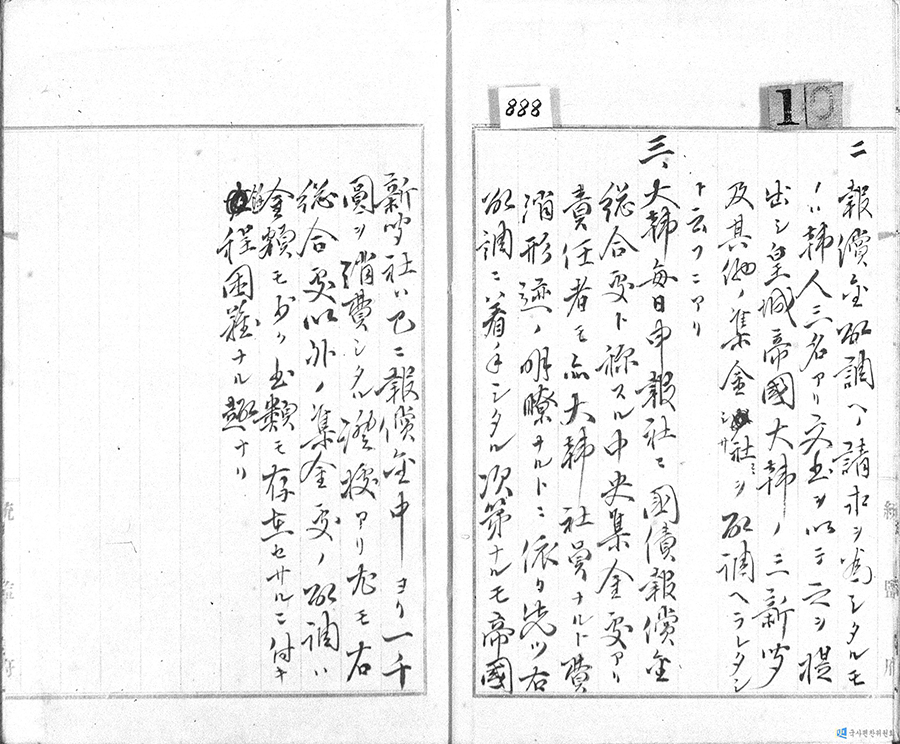 888
10
二 報償金取調ヘノ請求ヲ為シタルモ
ノハ韓人三名アリ文書ヲ以テ之ヲ提
出シ皇城帝國大韓ノ三新聞
及其他ノ集金社ヲ取調ヘラレタシ
ト云フニアリ
三、大韓毎日申報社ニ國債報償金
総合所ト称スル中央集金所アリ
責任者モ亦大韓社員ナルト費
消形迹ノ明瞭ナルトニ依リ先ツ右
取調ニ着手シタル次第ナルモ帝國
新聞社ハ已ニ報償金中ヨリ一千
圓ヲ消費シタル證拠アリ尤モ右
総合所以外ノ集金所ノ取調ハ
金額モ少ク書類モ存在セサルニ付キ
餘程困難ナル趣ナリ
統監府
統監府
국사편찬위원회